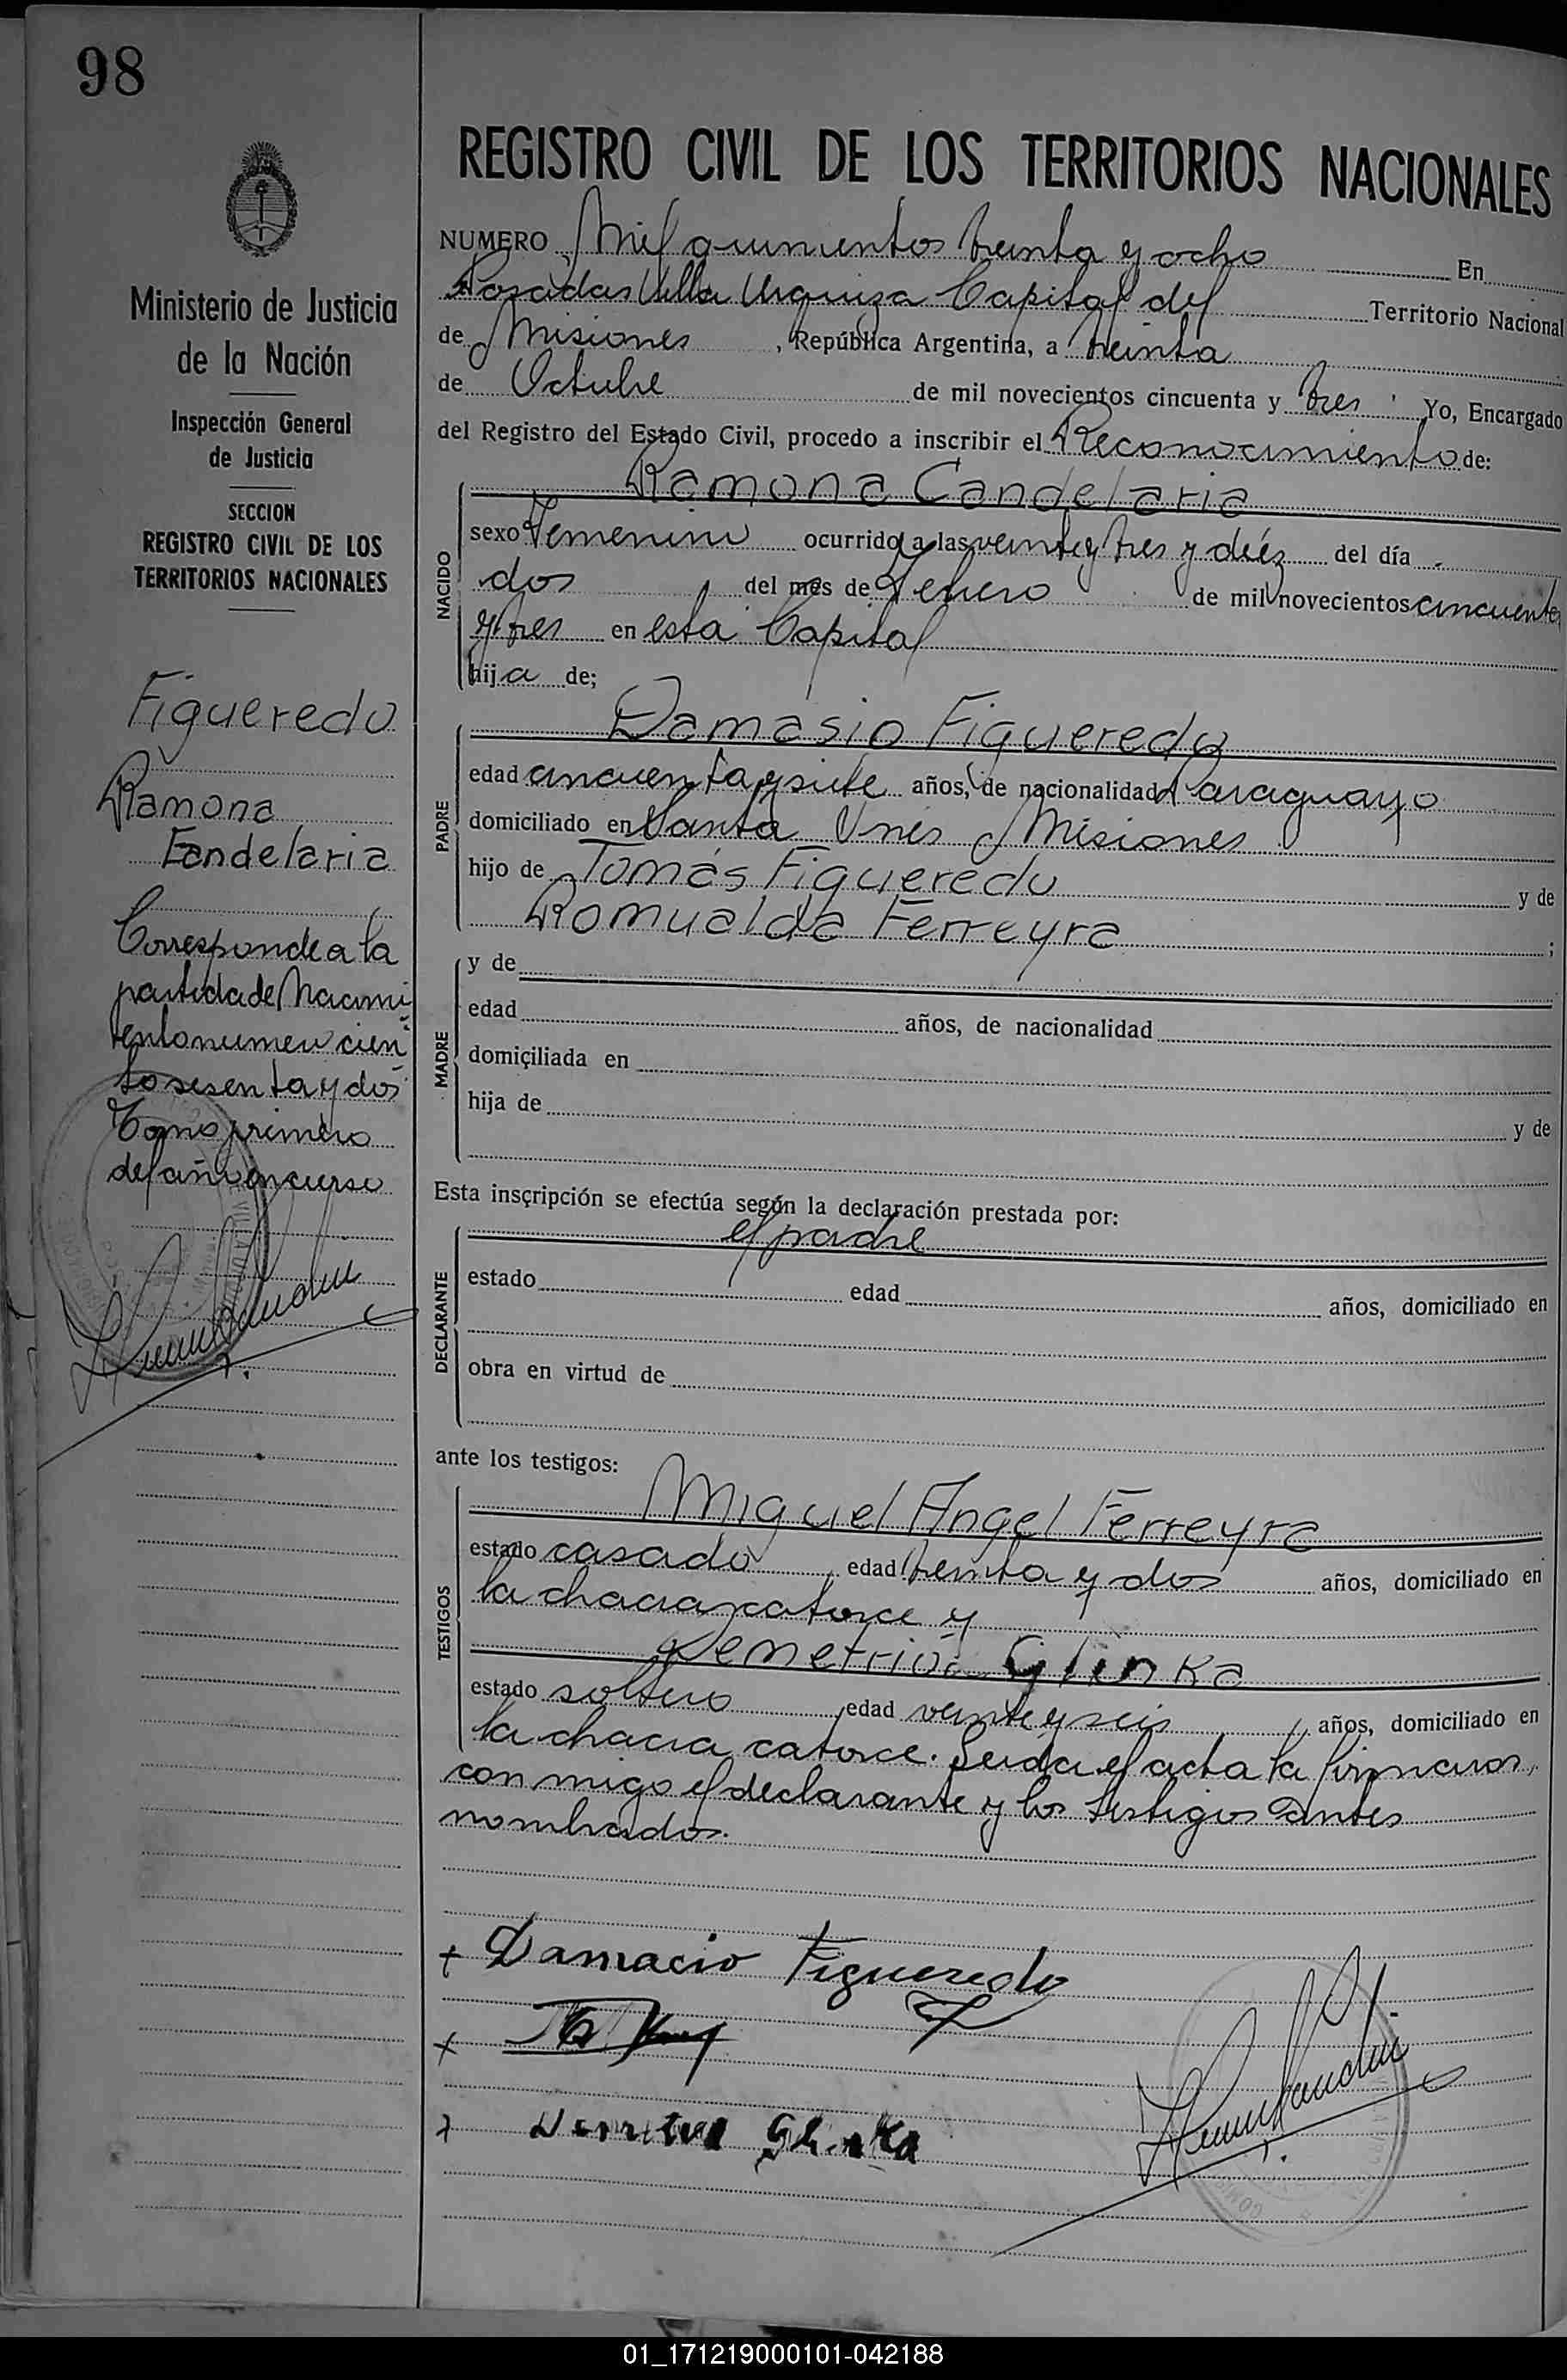 98
REGISTRO CIVIL DE LOS TERRITORIOS NACIONALES
Ministerio de Justicia
de la Nación
Inspección General
de Justicia
SECCION
REGISTRO CIVIL DE LOS
TERRITORIOS NACIONALES
Figueredo
Ramona
Candelaria
Corresponde a la
partida de Nacimi
ento numero cien
to sesenta y dos
Tomo primero
del año en curso
NUMERO Mil quinientos treinta y ocho En
Posadas Villa Urquiza Capital del Territorio Nacional
de Misiones, República Argentina, a treinta
de Octubre de mil novecientos cincuenta y tres Yo, Encargado
del Registro del Estado Civil, procedo a inscribir el Reconocimiento de:
NACIDO
Ramona Candelaria
sexo Femenino ocurrido a las veinte y tres y diéz del día
dos del mes de Febrero de mil novecientos cincuenta
y tres en esta Capital
hija de;
PADRE
Damasio Figueredo
edad cincuenta y siete años, de nacionalidad Paraguayo
domiciliado en Santa Inés Misiones
hijo de Tomás Figueredo y de
Romualda Ferreyra ;
MADRE
y de
edad años, de nacionalidad
domiciliada en
hija de y de
Esta inscripción se efectúa según la declaración prestada por:
DECLARANTE
el padre
estado edad años, domiciliado en
obra en virtud de
ante los testigos:
TESTIGOS
Miguel Angel Ferreyra
estado casado, edad treinta y dos años, domiciliado en
la chacra catorce y
Demetrio Glinka
estado soltero, edad veinte y seis, años, domiciliado en
la chacra catorce. Leida el acta la firmaron,
con migo el declarante y los testigos antes
nombrados.
+ Damacio Figueredo
+
+ Demetrio Glinka
01_171219000101-042188